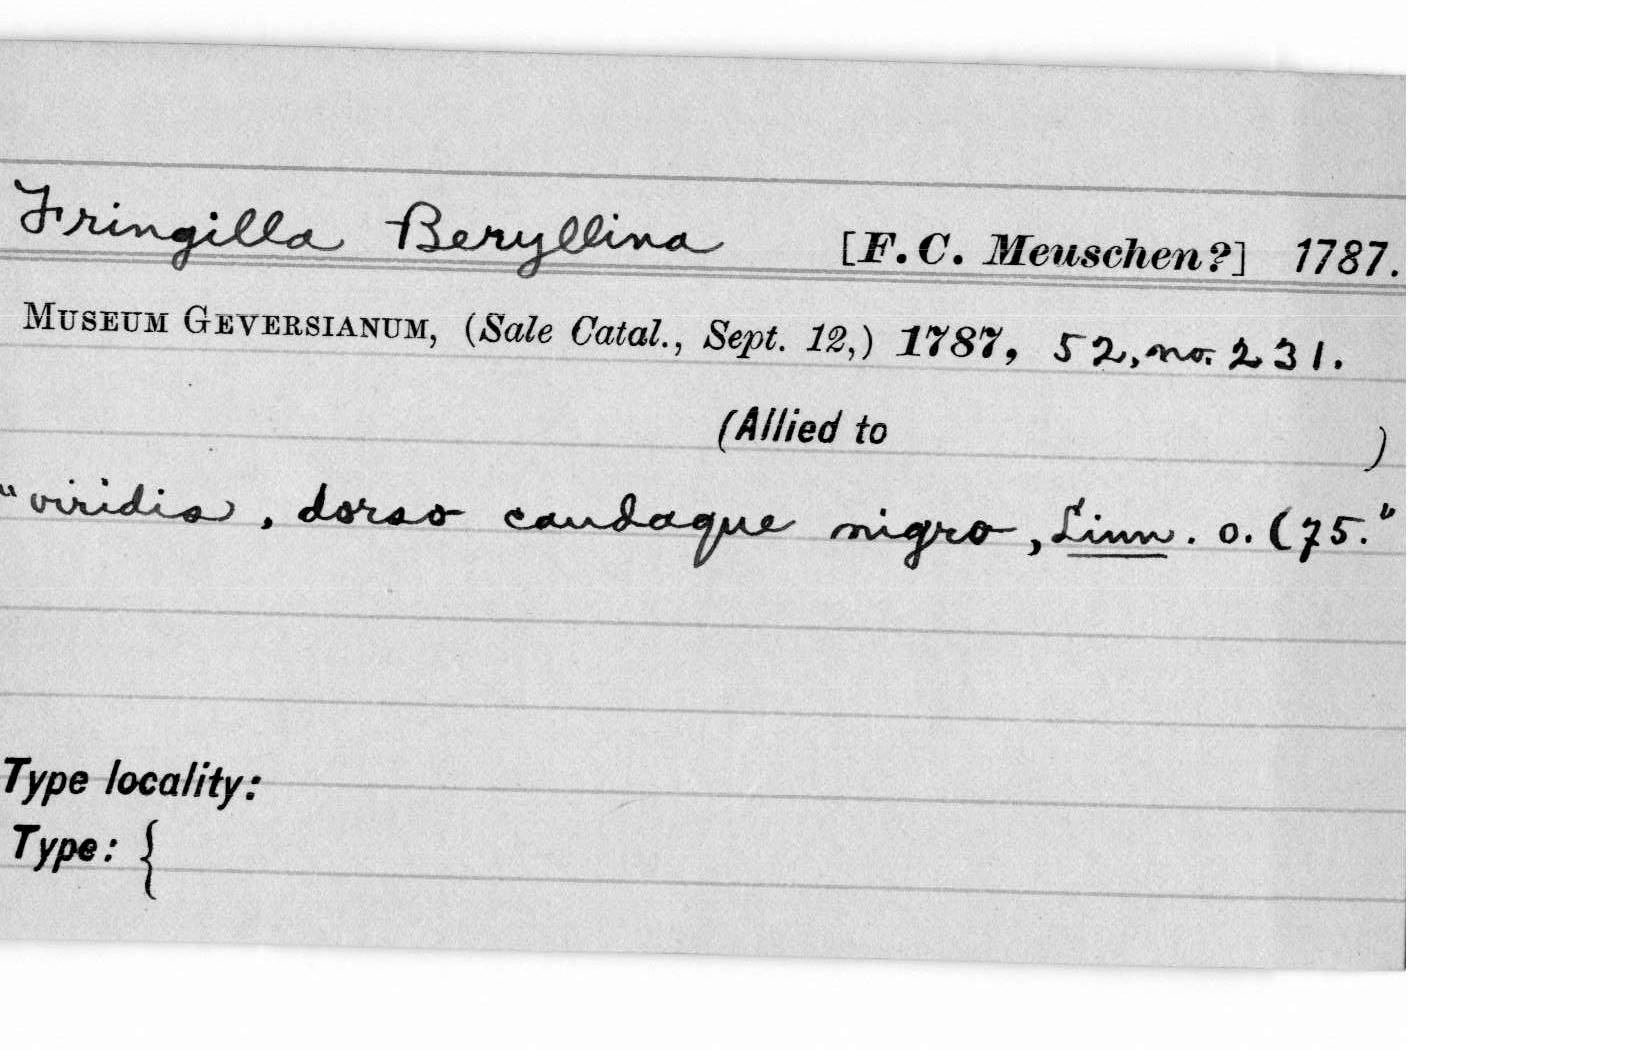 Fringilla Beryllina [F. C. Meuschen?] 1787.
MUSEUM GEVERSIANUM, (Sale Catal., Sept. 12,) 1787, 52, no. 231.
(Allied to )
"viridis, dorso caudaque nigro, Linn. o. (75."
Type locality:
Type: {